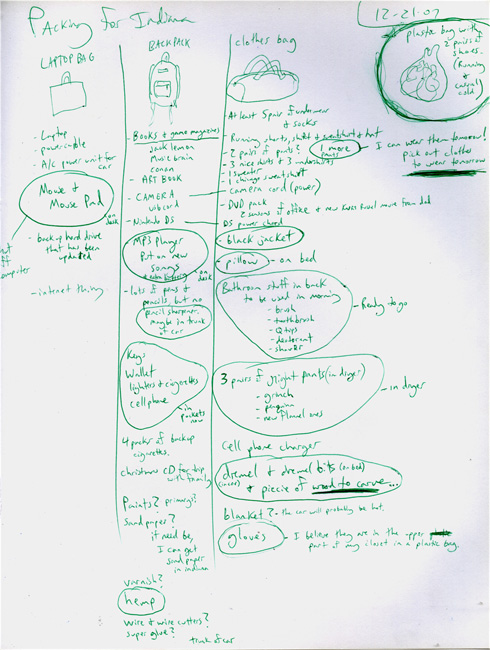 Packing for Indiana
12-21-07
LAPTOP BAG
- Laptop
- power cable
- A/C power unit for car
Mouse &
Mouse Pad
on desk
- backup hard drive
that has been
updated
- internet thing.
BACKPACK
Books & game magazines
Jack lemon
Music brain
conan
- ART BOOK
- CAMERA
w/ cord
- Nintendo DS
MP3 player
Put on new
songs
on desk
- lots of pens &
pencils, but no
pencil sharpener,
maybe in trunk
of car
Keys
Wallet
lighters & cigarettes
cellphone
in pockets
now
4 packs of backup
cigarettes.
christmas CD for trip
with family
Paints? primary?
Sand paper?
if need be,
I can get
sand paper
in indiana
varnish?
hemp
wire & wire cutters?
super glue?
trunk of car
clothes bag
At least 5 pair of underwear
& socks
- Running shorts, shirt & sweatshirt & hat
- 2 pairs of pants?
1 more
pants
- 3 nice shirts & 3 undershirts
- 1 sweater
- camera cord (power)
- DVD pack
2 seasons of office & new
from dad
DS power chord
- black jacket
- pillows
- on bed
Bathroom stuff in back
to be used in morning
- brush
- toothbrush
- Q tips
- deoderant
- shaver
- Ready to go
3 pairs of night pants (in dryer)
- grinch
- penguins
- new flannel ones
- in dryer
Cell phone charger
dremel & dremel bits (on bed)
& piecie of wood to carve...
blanket? - the car will probably be hot.
gloves
- I believe they are in the upper
part of my closet in a plastic bag.
plastic bag with
2 pairs of
shoes.
(Running
&
casual)
I can wear them tomorrow!
Pick out clothes
to wear tomorrow